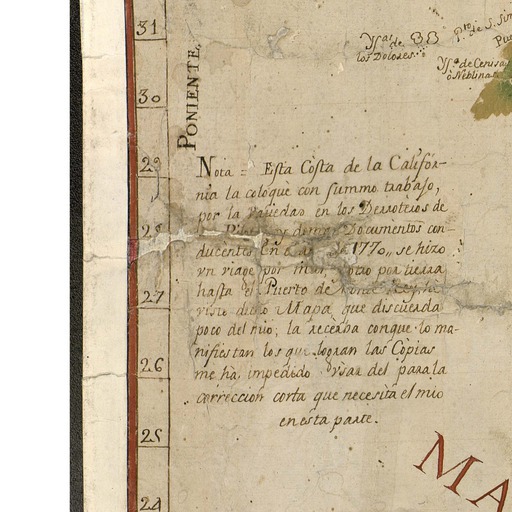 31
30
29
28
27
26
25
24
PONIENTE
Ysˢ. de
los Dolores
Pᵗᵒ. de S. Sim
Pue
Ysˢ. de Cenisas
ó Neblinas
Nota = Esta Costa de la Califór-
nia la coloquè con summo trabajo,
por la variedad en los Derroteros de
y demas Documentos con-
ducentes En el 1770,, se hizo
vn viage por mar, otro por tierra
hasta el Puerto de
visto dicho Mapa que discuerda
poco del mio; la reserba conque lo ma-
nifiestan los que logran las Copias
me hà impedido Vsar del para la
correccion corta que necesita el mio
en esta parte.
MA